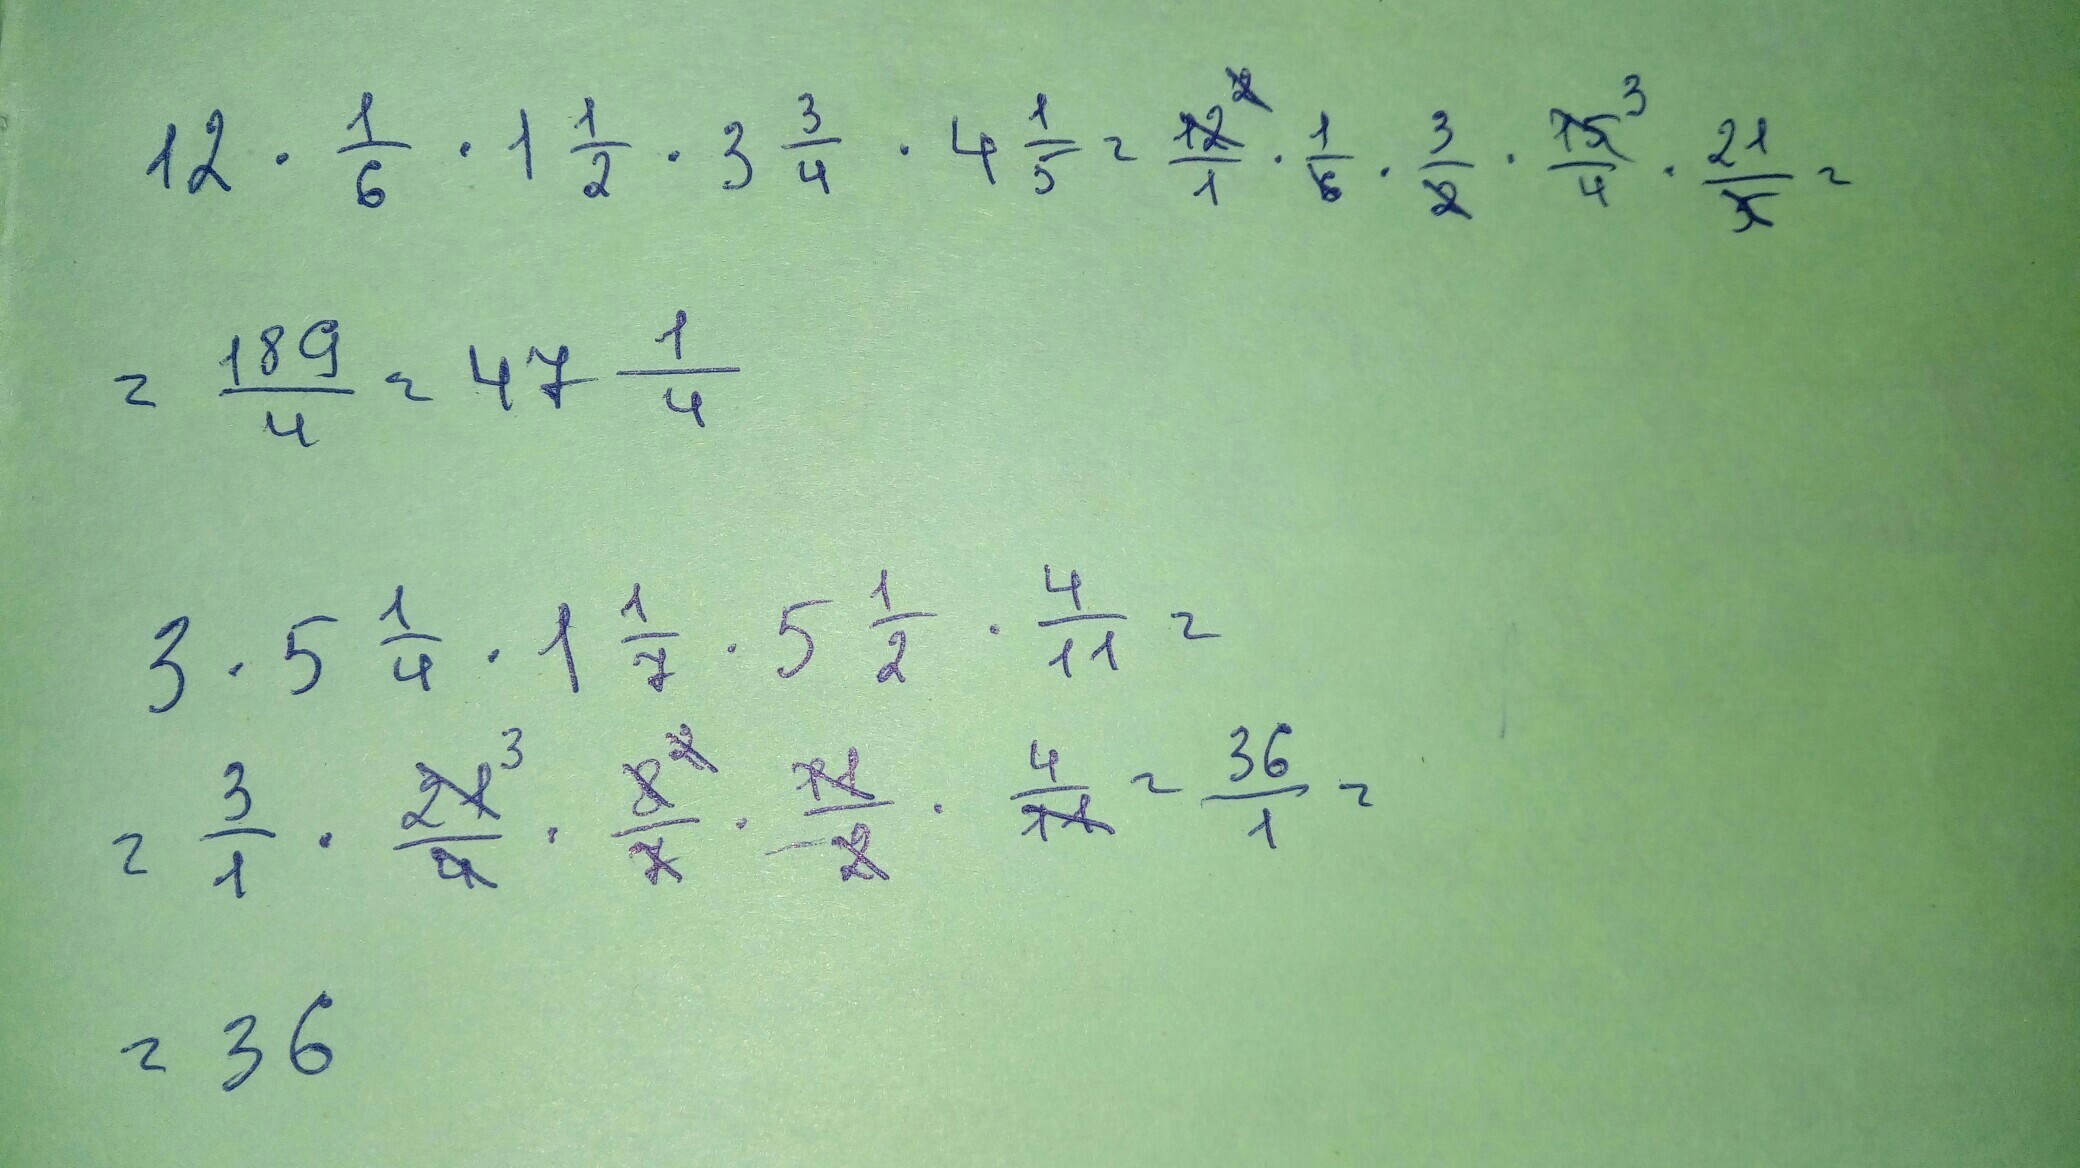 12 · 1/6 · 1 1/2 · 3 3/4 · 4 1/5 = 12 2/1 · 1/6 · 3/2 · 15 3/4 · 21/5 =
= 189/4 = 47 1/4
3 · 5 1/4 · 1 1/7 · 5 1/2 · 4/11 =
= 3/1 · 21 3/4 · 8 2/7 · 11/2 · 4/11 = 36/1 =
= 36